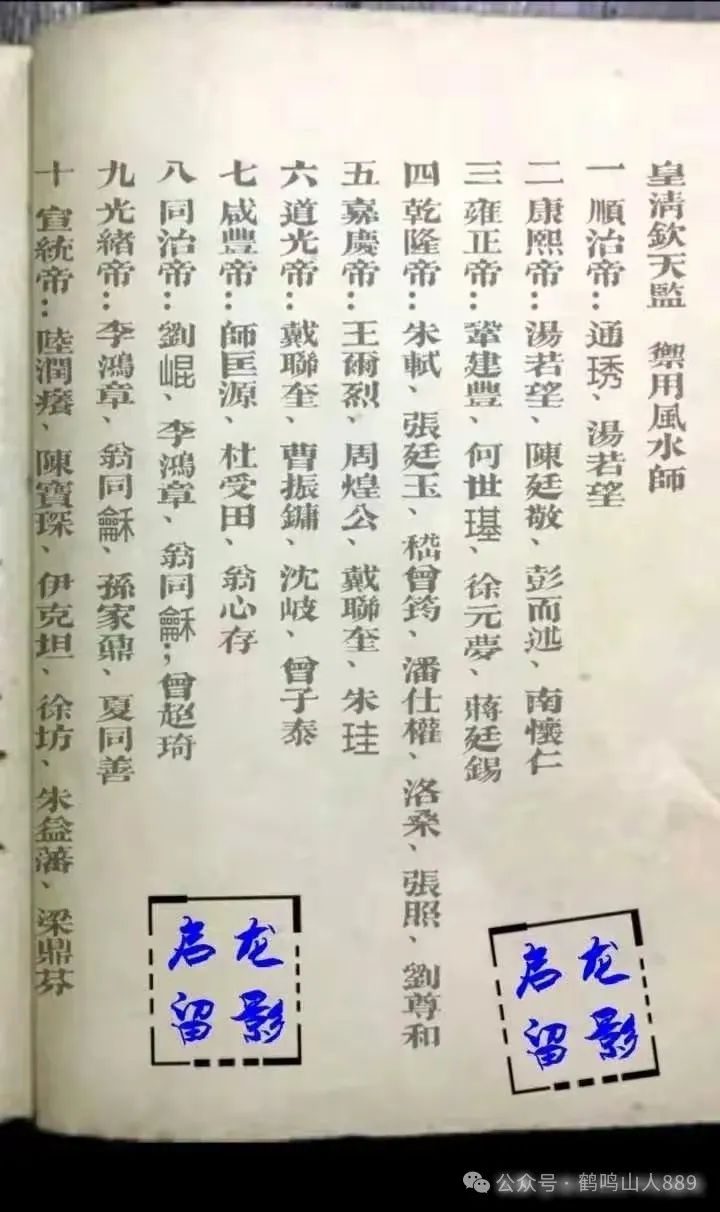 皇清欽天監　禦用風水師
一 順治帝：通琇、湯若望
二 康熙帝：湯若望、陳廷敬、彭而述、南懷仁
三 雍正帝：鞏建豐、何世璂、徐元夢、蔣廷錫
四 乾隆帝：朱軾、張廷玉、嵇曾筠、潘仕權、洛桑、張照、劉尊和
五 嘉慶帝：王爾烈、周煌公、戴聯奎、朱珪
六 道光帝：戴聯奎、曹振鏞、沈岐、曾子泰
七 咸豐帝：師匡源、杜受田、翁心存
八 同治帝：劉崐、李鴻章、翁同龢；曾趂琦
九 光緒帝：李鴻章、翁同龢、孫家鼐、夏同善
十 宣統帝：陸潤癢、陳寶琛、伊克坦、徐坊、朱益藩、梁鼎芬
启龙
留影
启龙
留影
公众号·鹤鸣山人889